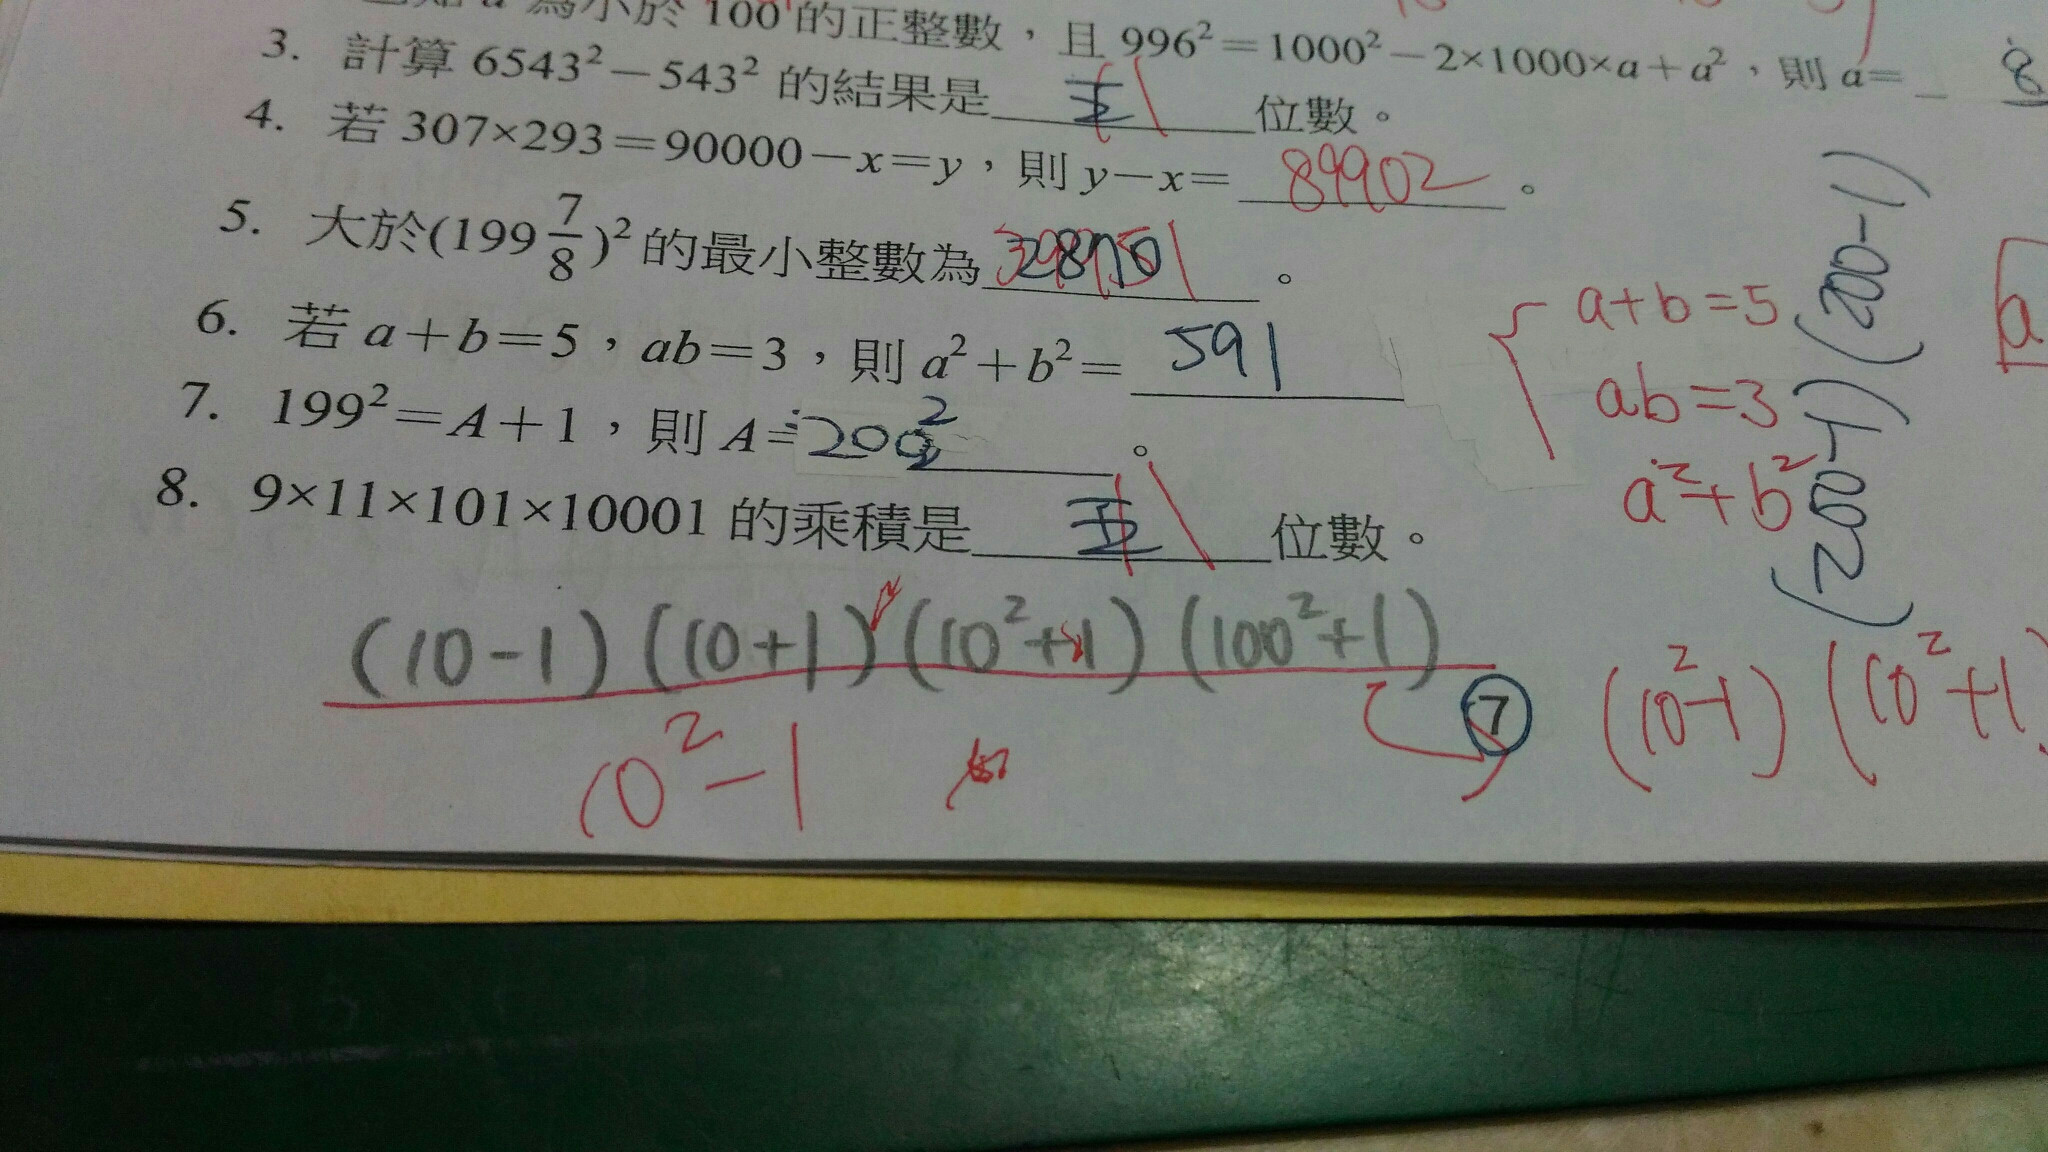 為小於 100 的正整數，且 996²＝1000²－2×1000×a＋a²，則 a＝ 8
3. 計算 6543²－543² 的結果是 五 位數。
4. 若 307×293＝90000－x＝y，則 y－x＝ 89902 。
5. 大於(199 7/8)² 的最小整數為 。
6. 若 a＋b＝5，ab＝3，則 a²＋b²＝ 591
7. 199²＝A＋1，則 A＝ 200² 。
8. 9×11×101×10001 的乘積是 五 位數。
(10-1) (10+1) (10²+1) (100²+1)
10²-1
7
(10²-1) (10²+1)
a+b=5
ab=3
a²+b²
(200-1) (200-1) (200-1)
a